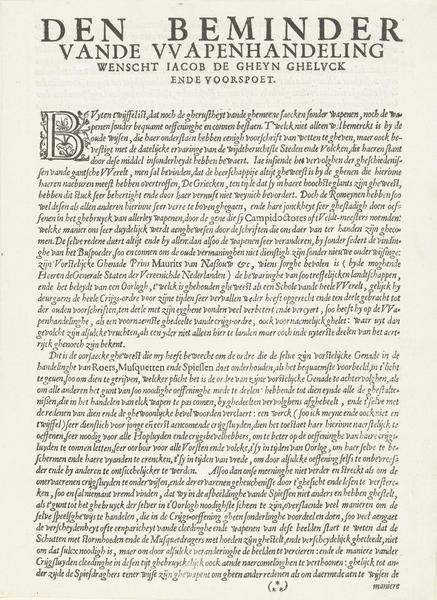 DEN BEMINDER
VANDE VVAPENHANDELING
WENSCHT IACOB DE GHEYN GHELVCK
ENDE VOORSPOET.
BVyten twijffel ist, dat noch de gherustheyt vande ghemeene saecken sonder wapenen, noch de wa-
penen sonder bequame oeffeninghe en connen bestaen. T welck niet alleen wel bemerckt is by de
oude wijsen, die haer onderstaen hebben eenigh voorschrift van wetten te gheven, maer oock be-
vestigt met de datelijcke ervaringe van de wijdtberuchtste Steden ende Volcken, die haeren stant
door dese middel insonderheydt hebben bewaert. Iae insiende het vervolghen der gheschiedenis-
sen vande gantsche VVerelt, men sal bevinden, dat de heerschappije altijt gheweest is by de ghenen die hierinne
haeren naebueren meest hebben overtroffen. De Griecken, ten tijde dat sy in haere hoochste glants zijn gheweest,
hebben dit stuck seer behertigt ende door haer vernuft niet weynich bevordert. Doch de Romeynen hebben soo
wel desen als allen anderen hierinne seer verre te boven ghegaen, ende hare jonckheyt seer ghestadigh doen oef-
fenen in het ghebruyck van allerley wapenen, door de gene die sy Campidoctores oft Veldt-meesters noemden:
welcke manier ons seer duydelijck werdt aenghewesen door de schriften die ons daer van ter handen zijn gheco-
men. De selve redene duert altijt ende by allen: dan alsoo de wapenen seer veranderen, by sonder sedert de vindin-
ghe van het Buspoeder, soo en connen ons de oude vermaninghen niet dienstigh zijn sonder nieuwe onderwijsinge:
zijn Vorstelijcke Ghenade Prins Maurits van Nassouw &c, wiens sorghe bevolen is (by de moghende
Heeren de Generale Staten der Vereenichde Nederlanden) de bewaringhe van soo treffelijcken landtschappen,
ende het beleydt van een Oorlogh, t welck is ghehouden gheweest als een Schole vande heele VVerelt, gelijck hy
deurgaens de heele Crijgs-ordre voor zijne tijden seer vervallen weder heeft opgerecht ende ten deele gebracht tot
der ouden voorschriften, ten deele met zijn eyghen vonden veel verbetert ende verciert, soo heeft hy op de VVa-
penhandelinghe, als een voornaemste ghedeelte vande crijgs-ordre, oock voornaemelijck ghelet: waer uyt dan
gevolcht zijn alsulcke vruchten, als een yder niet alleen hier te landen maer oock inde uyterste deelen van het aert-
rijck ghenoech zijn bekent.
Dit is de oorsaecke gheweest die my heeft beweecht om de ordre die de selve zijn vorstelijcke Genade in de
handelinghe van Roers, Musquetten ende Spiessen doet onderhouden, als het bequaemste voorbeeldt, in't licht
te geven, soo om dien te gerijven, welcker plicht het is de ordre van zijne vorstelijcke Genade te achtervolghen, als
om alle anderen het gunt van soo noodighe oeffeninghe mede te deelen: hebbende tot dien eynde alle de ghestalte-
nissen, die in het handelen van elck wapen te pas comen, by ghedeelten vervolghens afghebeelt, ende t'selve met
de redenen van dien ende de ghewoonlijcke bevel woorden verclaert: een werck (soo ick meyne ende oock niet en
twijffel) seer dienstich voor jonge en eerst aencomende crijgsluyden, dien het toestaet haer hierinne naerstelijck te
oeffenen, seer noodig voor alle Hopluyden ende crijgsbevelhebbers, om te beter op de oeffeninghe van haere crijgs-
luyden te connen letten, seer oorboor voor alle Vorsten ende volcke, t'sy in tijden van Oorlog, om haer selve te be-
schermen ende haere vyanden te crencken, t'sy in tijden van vrede, om door alsulcke oeffening selfs te onbevrees-
der ende by anderen te ontsichelijcker te werden. Alsoo dan onse meninghe niet verder en streckt als om de
onervaerenen crijgsluyden te onderwijsen, ende der ervarenen geheuchenisse door t'ghesicht ende lesen te verster-
cken, soo en sal niemant vremd vinden, dat wy in de afbeeldinghe vande Spiessen niet anders en hebben ghestelt,
als t'gunt tot het ghebruyck der selver in t'Oorlogh noodighst scheen te zijn, overslaende veel manieren om de
selve speelsghewijs te handelen, die in de Crijgs-oeffening gheen sonderlinghe voordeel en doen, soo veel aengaet
de verscheydenheyt ofte eenpaericheyt vande cleedinghe ende wapenen van dese beelden staet te weten dat de
Schutten met Stormhoeden ende de Musquetdragers met hoeden zijn ghestelt, ende verscheydelijck ghecleedt, niet
om dat sulcx noodigh is, maer om door alsulcke veranderinghe de beelden te vercieren: ende de maniere vander
Crijgsluyden cleedinghe in desen tijdt ghebruyckelijck oock aende naercomelinghen te verthoonen: ghelijck tot an-
der zijde de Spiesdraghers eener wijse zijn ghewapent om gheen ander redenen als om daermede aen te wijsen de
(***)
maniere